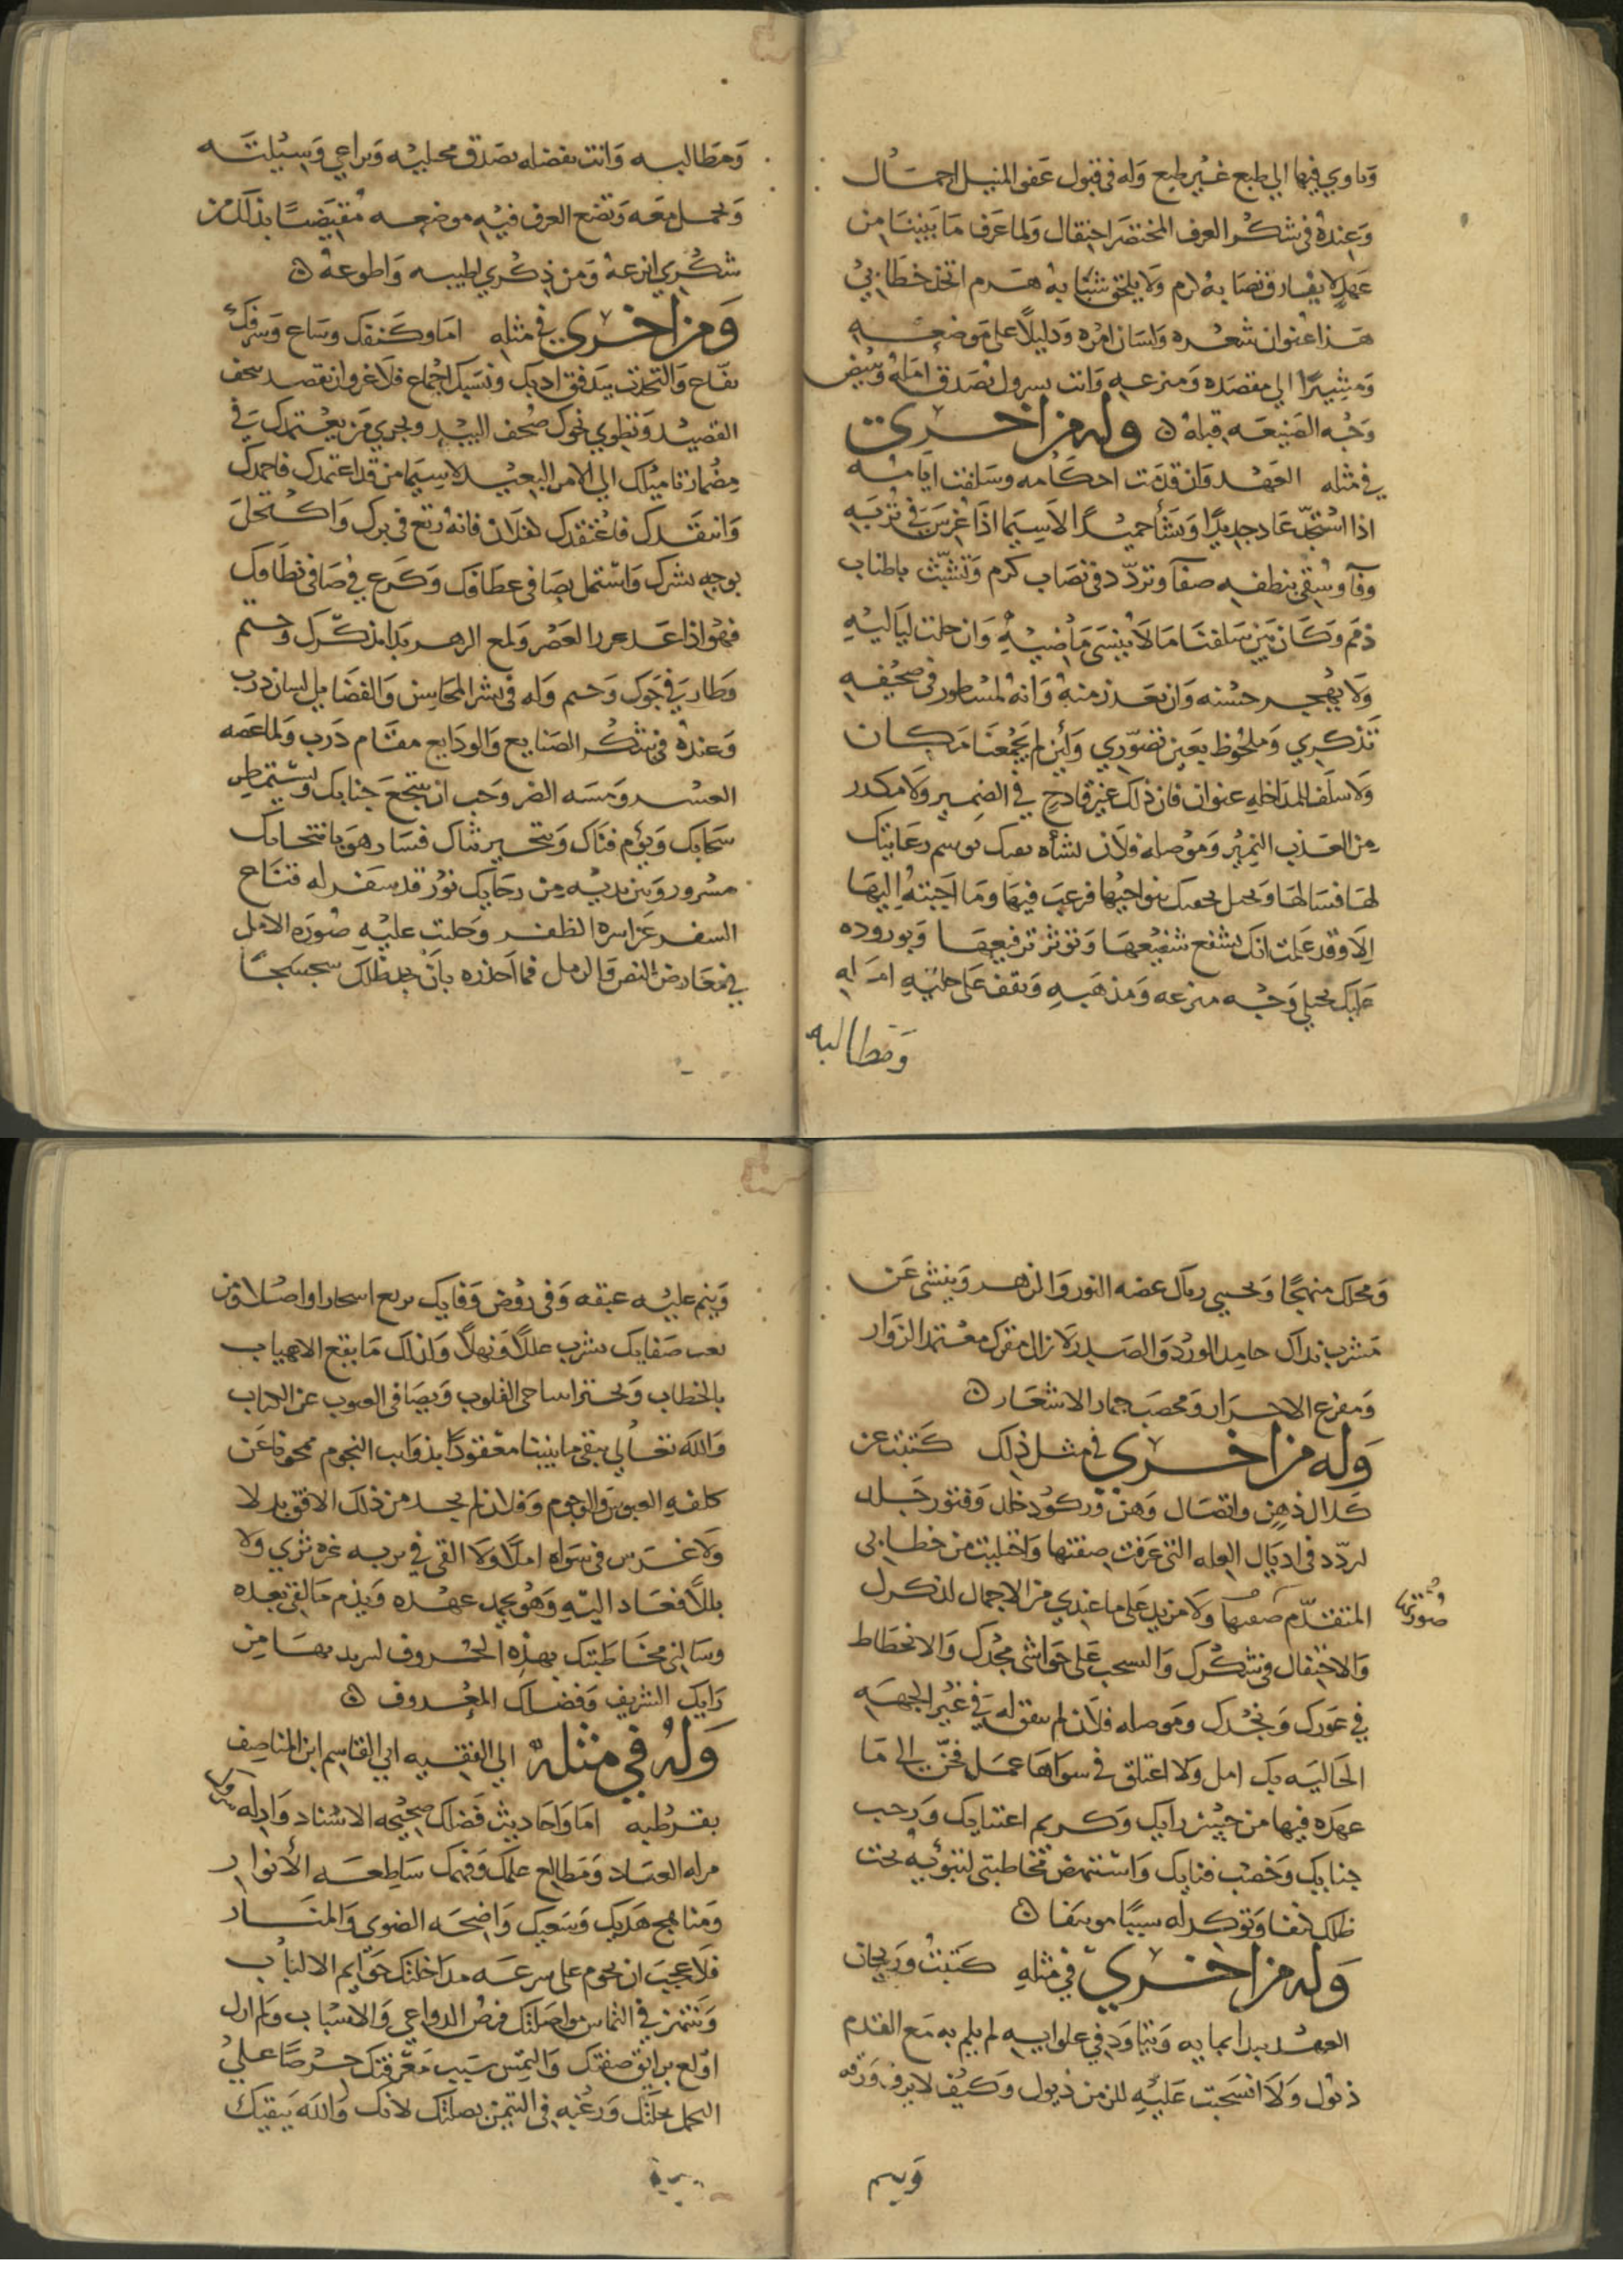 وياوي فيها الي طبع غير طبع وله في قبول عفو المنيل احمال
وعنده في شكر العرف المختصر احتفال ولما عرف ما بيننا من
عهد لا يفارق نصابه كرم ولا يلحق شبابه هرم اتخذ خطابي
هذا عنوان شعره ولسان امره ودليلا على موضعه
ومشيرا الي مقصده ومنزعه وانت بسرول تصدق امله وتبيض
وجه الصنيعه قبله ه وله من اخرى
في مثله العهد وان قدمت احكامه وسلفت ايامه
اذا استجد عاد جديدا ونشأ حميدا لاسيما اذا غرس في تربه
وفآ وسقي بنطفه صفآ وتردد في نصاب كرم وتشبث باطناب
ذمم وكان بين سلفنا ما لا ينسى ماضيه وان خلت لياليه
ولا يهجر حسنه وان بعد زمنه وانه لمسطور في صحيفه
تذكري وملحوظ بعين تصوري ولئن لم يجمعنا مكان
ولا سلف للمداخله عنوان فان ذلك غير قادح في الضمير ولا مكدر
من العذب النمير وموصله فلان نشأه توسم رعايتك
لها فسالها بنواحيها فرغب فيها وما اجبته اليها
الا وقد علمت انك تشفع شفيعها وتوثر ترفيعها وبوروده
عليك يجلي وجه منزعه ومذهبه وتقف على جليه امله
ومطالبه
ومطالبه وانت بفضله تصدق مخيلته وتراعي وسيلته
وتجمل معه وتضع العرف فيه موضعه مقيضا بذلك من
شكري اترعه ومن ذكري اطيبه واطوعه ه
ومن اخرى في مثله اما وكنفك وساع وشرفك
يفاع والتحدث بتدفق ادبك ونسبك اجماع فلا غرو ان تقصد سحف
القصيد وتطوي نحوك صحف البيد ويجري من يعتمدك في
مضمار تاميلك الي الامر البعيد لاسيما من قد اعتمدك فاحمدك
وانتقدك فاعتقدك كفلان فانه رتع في برك واكتحل
بوجه بشرك واشتمل بضافي عطافك وكرع في صافي نطافك
فهو اذا عد غرر العصر ولمع الزهر بدا بذكرك وختم
وطار في جوك وجثم وله في نشر المحاسن والفضايل لسان ذرب
وعنده في شكر الصنايع والودايع مقام درب ولما عضه
العسر ومسه الضر وجب ان ينتجع جنابك ويستمطر
سحابك ويؤم فناك ويتخير ثناك فسار وهو بانتحابك
مسرور وبين يديه من رجايك نور قد سفر له قناع
السفر عن اسره الظفر وجلت عليه صوره الامل
في معارض النص والرمل فما احذره بان يجد ظلك سجسجا
ومحلك منهجا ويحيي رمال عضه النور والزهر وينثني عن
مشرب نداك حامد الورد والصدر لا زال مقرك معتمد الزوار
ومفزع الاحرار ومحصب جمار الاشعار ه
وله من اخرى في مثل ذلك كتبت عن
كلال ذهن واتصال وهن وركود خاطر وفتور جلد
لردد في اذيال العله التي عرفت صفتها واجليت من خطابي
المتقدم صفتها ولا مزيد على ما عندي من الاجمال لذكرك
وصورتها
والاحتفال في شكرك والسحب على حواشي مجدك والانحطاط
في غورك ونجدك وموصله فلان لم يتفق له في غير الجهه
الحاليه بك امل ولا اعتلق في سواها عمل فحن الى ما
عهده فيها من حسن رايك وكريم اعتنايك ورحب
جنابك وخصب فنايك واستنهض مخاطبتي لتبوئه تحت
ظلك كنفا وتوكد له سببا موتنفا ه
وله من اخرى في مثله كتبت وريحان
العهد بيدا بمايه ويتاود في علوايه لم يلم به مع القدم
ذبول ولا انسحبت عليه للزمن ذيول وكيف لا يرف ورقه
وينم
وينم عليه عبقه وفي روض وفايك يربع اسحارا واصلا ومن
ثغب صفايك يشرب عللا ونهلا وان لك ما يقع الاهياب
بالخطاب وتحتز اساحى القلوب ويصافى الصوب عن
والله تعالي يبقي ما بيننا معقودا بذوايب النجوم ممحوقا عن
كلفه العبوس والوجوم وفلان لم يجد من ذلك الافق بدلا
ولا غرس في سواه املا ولا القى في تربه غره ثري ولا
بللا فعاد اليه وهو يحمد عهده ويذم ما لقي بعده
وسالني مخاطبتك بهذه الحروف لسريد بها من
رايك الشريف وفضلك المعروف ه
وله في مثله الي الفقيه ابي القاسم ابن المناصف
بقرطبه اما واحاديث فضلك صحيحه الاسناد وادله سروك
مرله العناد ومطالع علمك وفهمك ساطعه الأنوار
ومناهج هديك وسعيك واضحه الضوي والمنار
فلا عجب ان يحوم على سرعه مداخلتك حوايم الالباب
وتنتهز في التماس مواصلتك فرص الدواعي والاسباب ولم ازل
اولع برايق صفتك والتمس سبب معرفتك حرصا علي
التجمل بخلتك ورغبه في التيمن بصلتك لانك والله يبقيك